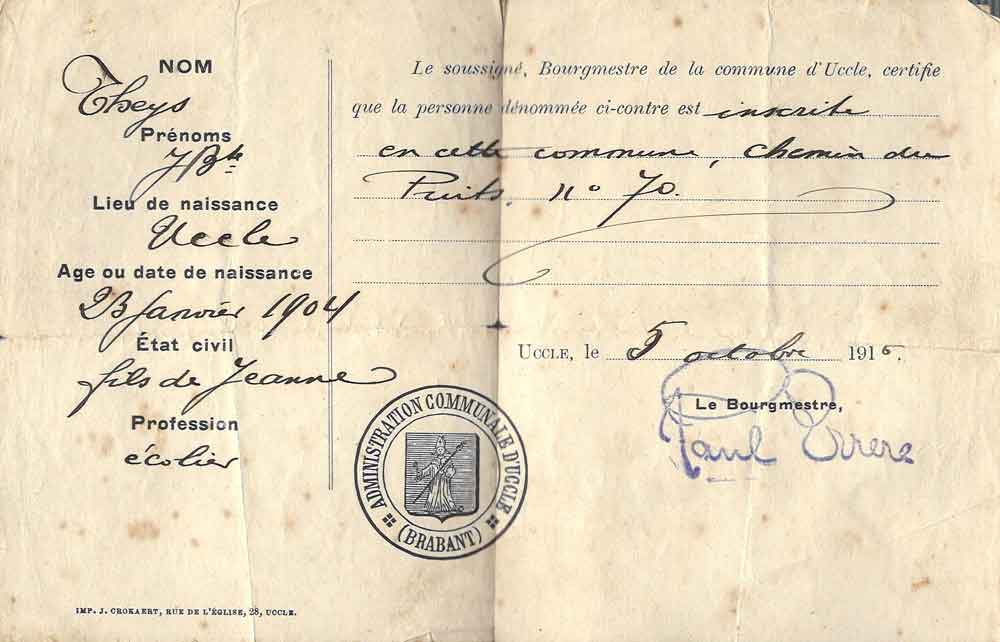 NOM
Theys
Prénoms
J Bte
Lieu de naissance
Uccle
Age ou date de naissance
23 Janvier 1904
État civil
fils de Jeanne
Profession
écolier
Le soussigné, Bourgmestre de la commune d'Uccle, certifie
que la personne dénommée ci-contre est inscrite
en cette commune, chemin du
Puits, n° 70.
UCCLE, le 5 octobre 1916.
Le Bourgmestre,
Paul Errera
ADMINISTRATION COMMUNALE D'UCCLE
(BRABANT)
IMP. J. CROKAERT, RUE DE L'ÉGLISE, 28, UCCLE.